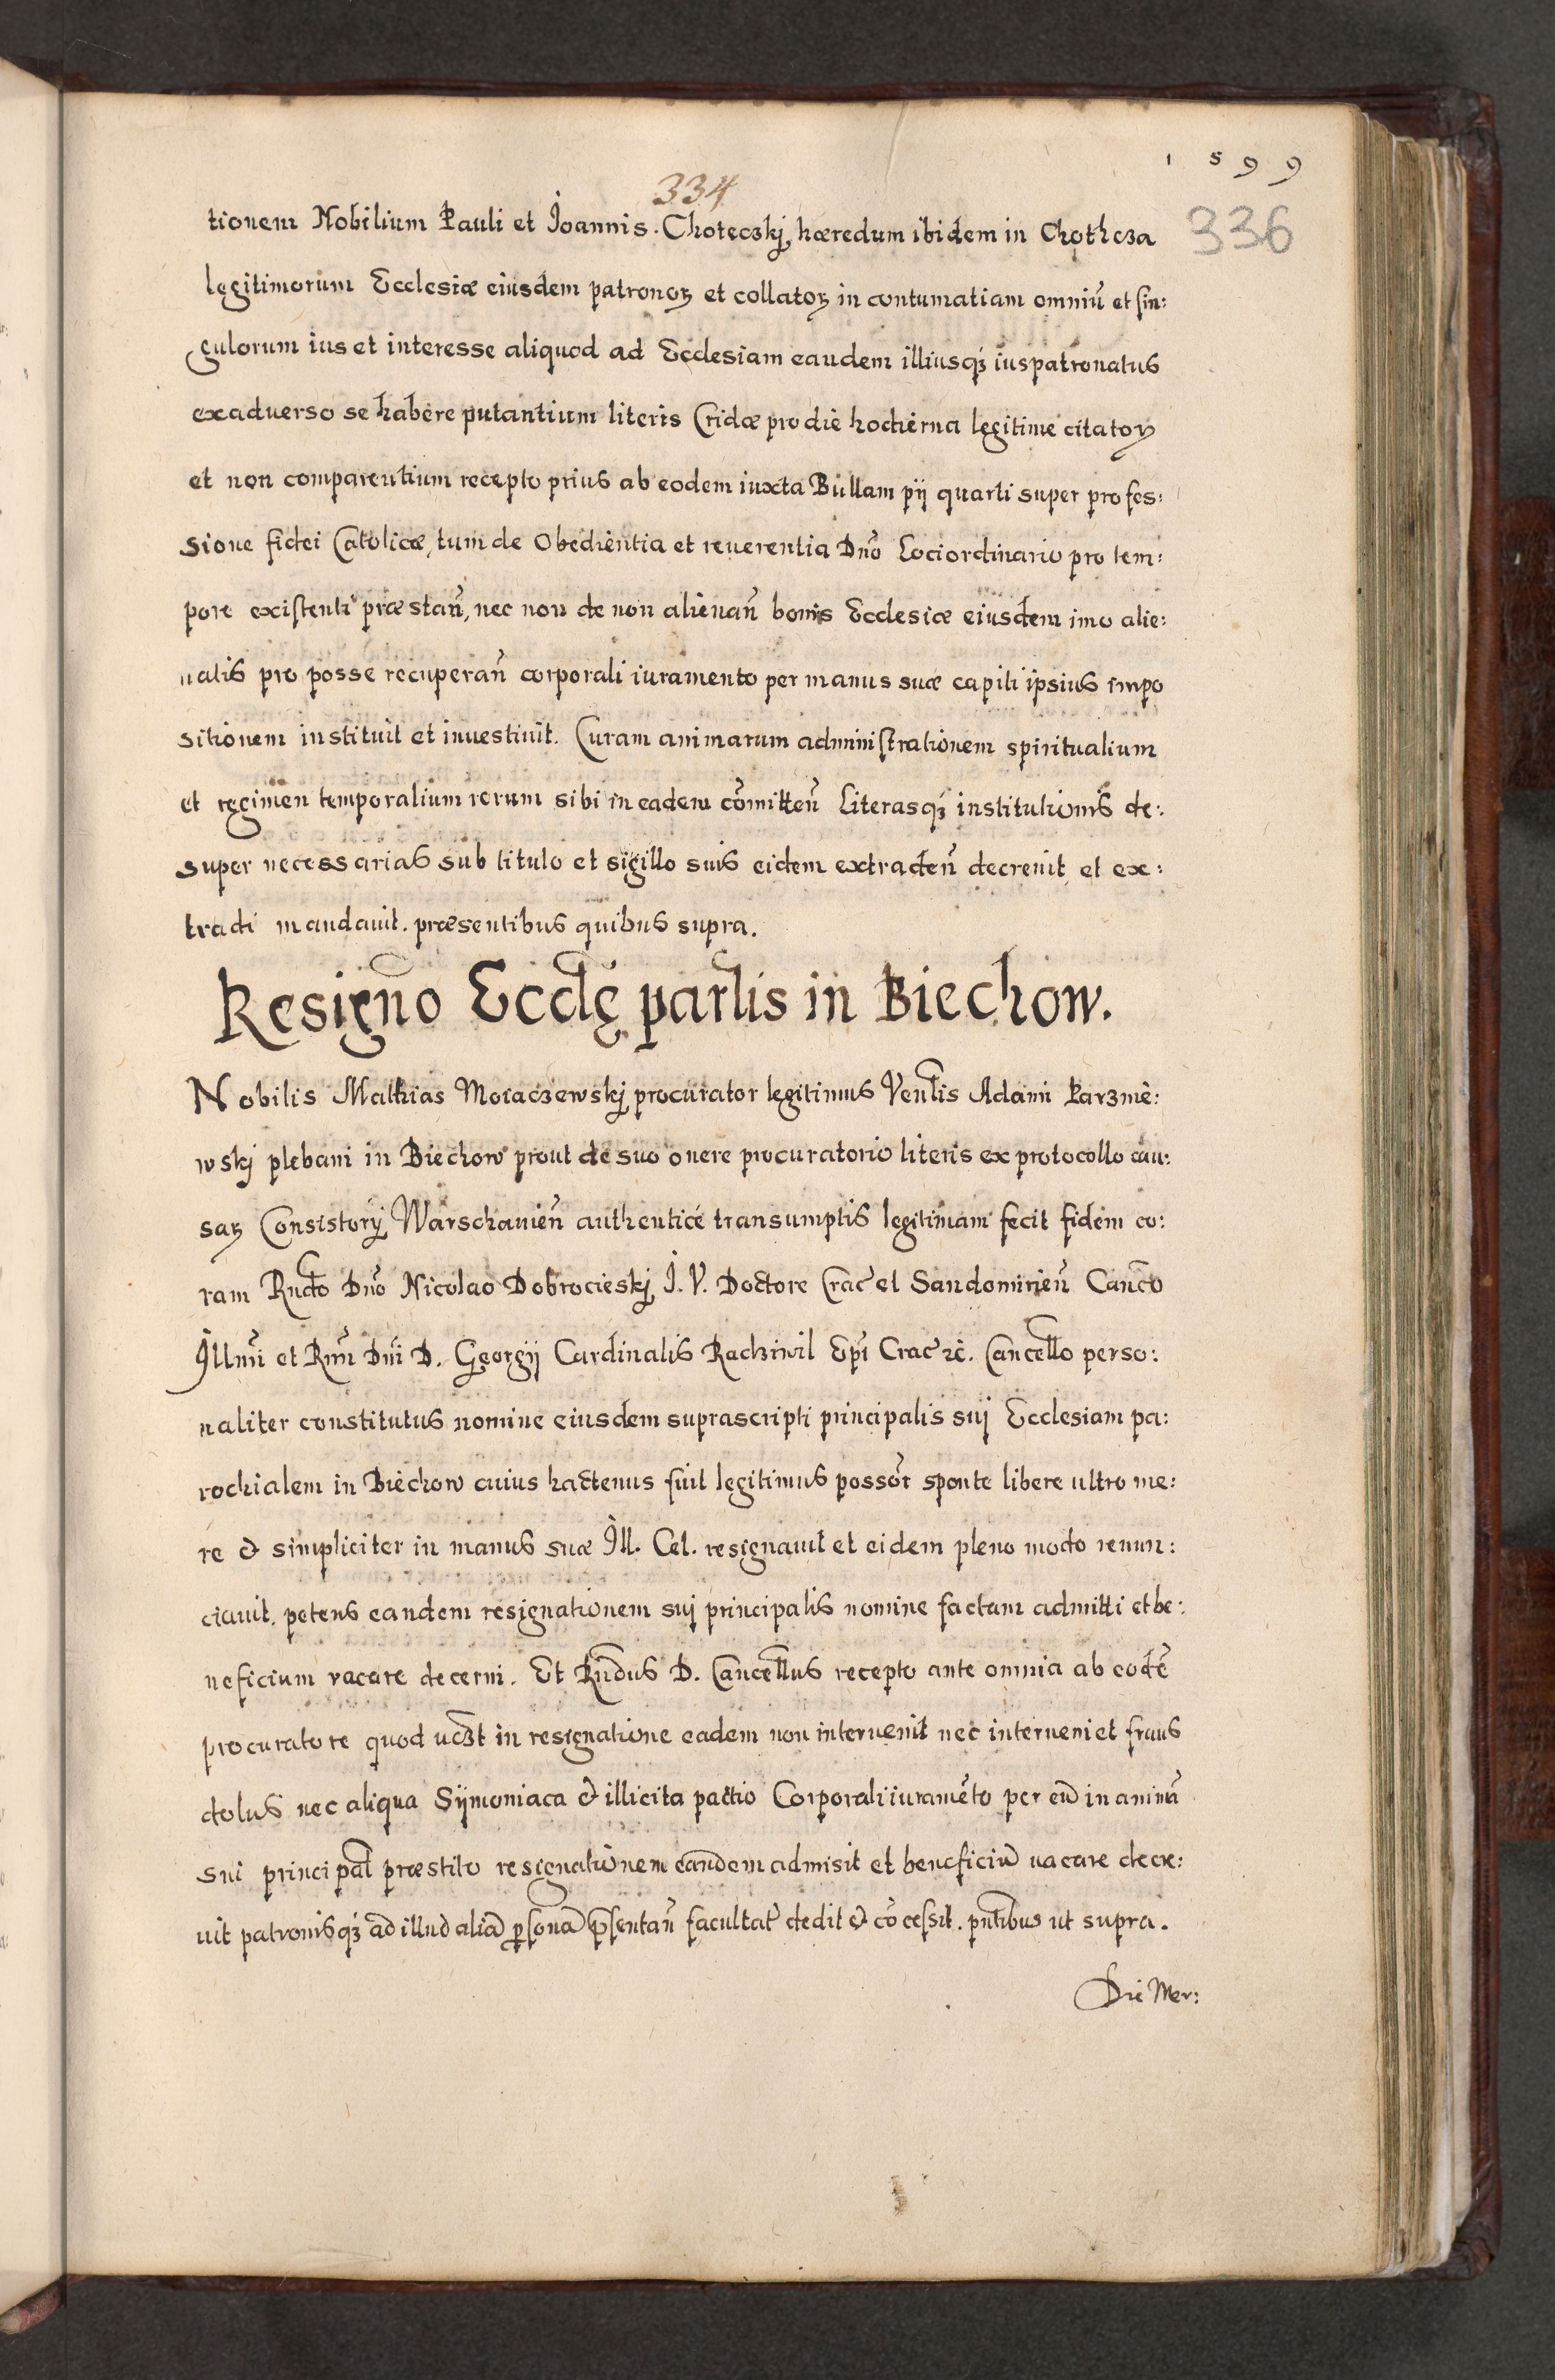 1 5 9 9
334
336
tionem Nobilium Pauli et Joannis Choteczkj, hæredum ibidem in Chothcza
legitimorum Ecclesiæ eiusdem patronoꝝ et collatoꝝ in contumatiam omniũ et sin:
gulorum ius et interesse aliquod ad Ecclesiam eandem illiusqꝫ iuspatronatus
exaduerso se habere putantium literis Cridæ pro die hodierna legitime citatoꝝ
et non comparentium recepto prius ab eodem iuxta Bullam pij quarti super profes:
sione fidei Catolicæ, tum de Obedientia et reuerentia Dño Lociordinario pro tem:
pore existenti præstañ, nec non de non alienañ bonis Ecclesiæ eiusdem imo alie:
natis pro posse recuperañ corporali iuramento per manus suæ capiti ipsius impo
sitionem instituit et inuestiuit. Curam animarum administrationem spiritualium
et regimen temporalium rerum sibi in eadem cõmitteñ Literasqꝫ institutionis de:
super necessarias sub titulo et sigillo suis eidem extradeñ decreuit et ex:
tradi mandauit. præsentibus quibus supra.
Resigño Eccłę parłis in Biechow.
Nobilis Mathias Moraczewskj procurator legitimus Veñlis Adami Parzmie:
wskj plebani in Biechow prout de suo onere procuratorio literis ex protocollo cau:
saꝝ Consistorij Warschauieñ authenticé transumptis legitimam fecit fidem co:
ram Rndo Dño Nicolao Dobrocieskj J. V. Doctore Crac̃ et Sandomirieñ Cañco
Illmi et Rmi Dñi D. Georgij Cardinalis Radziwil Epĩ Crac̃ ꝛc̃. Cancello perso:
naliter constitutus nomine eiusdem suprascripti principalis suj Ecclesiam pa:
rochialem in Biechow cuius hactenus fuit legitimus possor̃ sponte libere ultro me:
re & simpliciter in manus suæ Ill. Cel. resignauit et eidem pleno modo renun:
ciauit. petens eandem resignationem suj principalis nomine factam admitti et be:
neficium vacare decerni. Et Rñdus D. Cancellus recepto ante omnia ab eodẽ
procuratore quod uczt in resignatione eadem non interuenit nec interueniet fraus
dolus nec aliqua Sijmoniaca & illicita pactio Corporali iuramẽto per eũ in animã
sui principał præstito resignationem eandem admisit et beneficiũ uacare decre:
uit patronisqꝫ ad illud aliã ꝑsonã p̃sentañ facultat̃ dedit & cõcessit. pñtibus ut supra.
Die Mer: